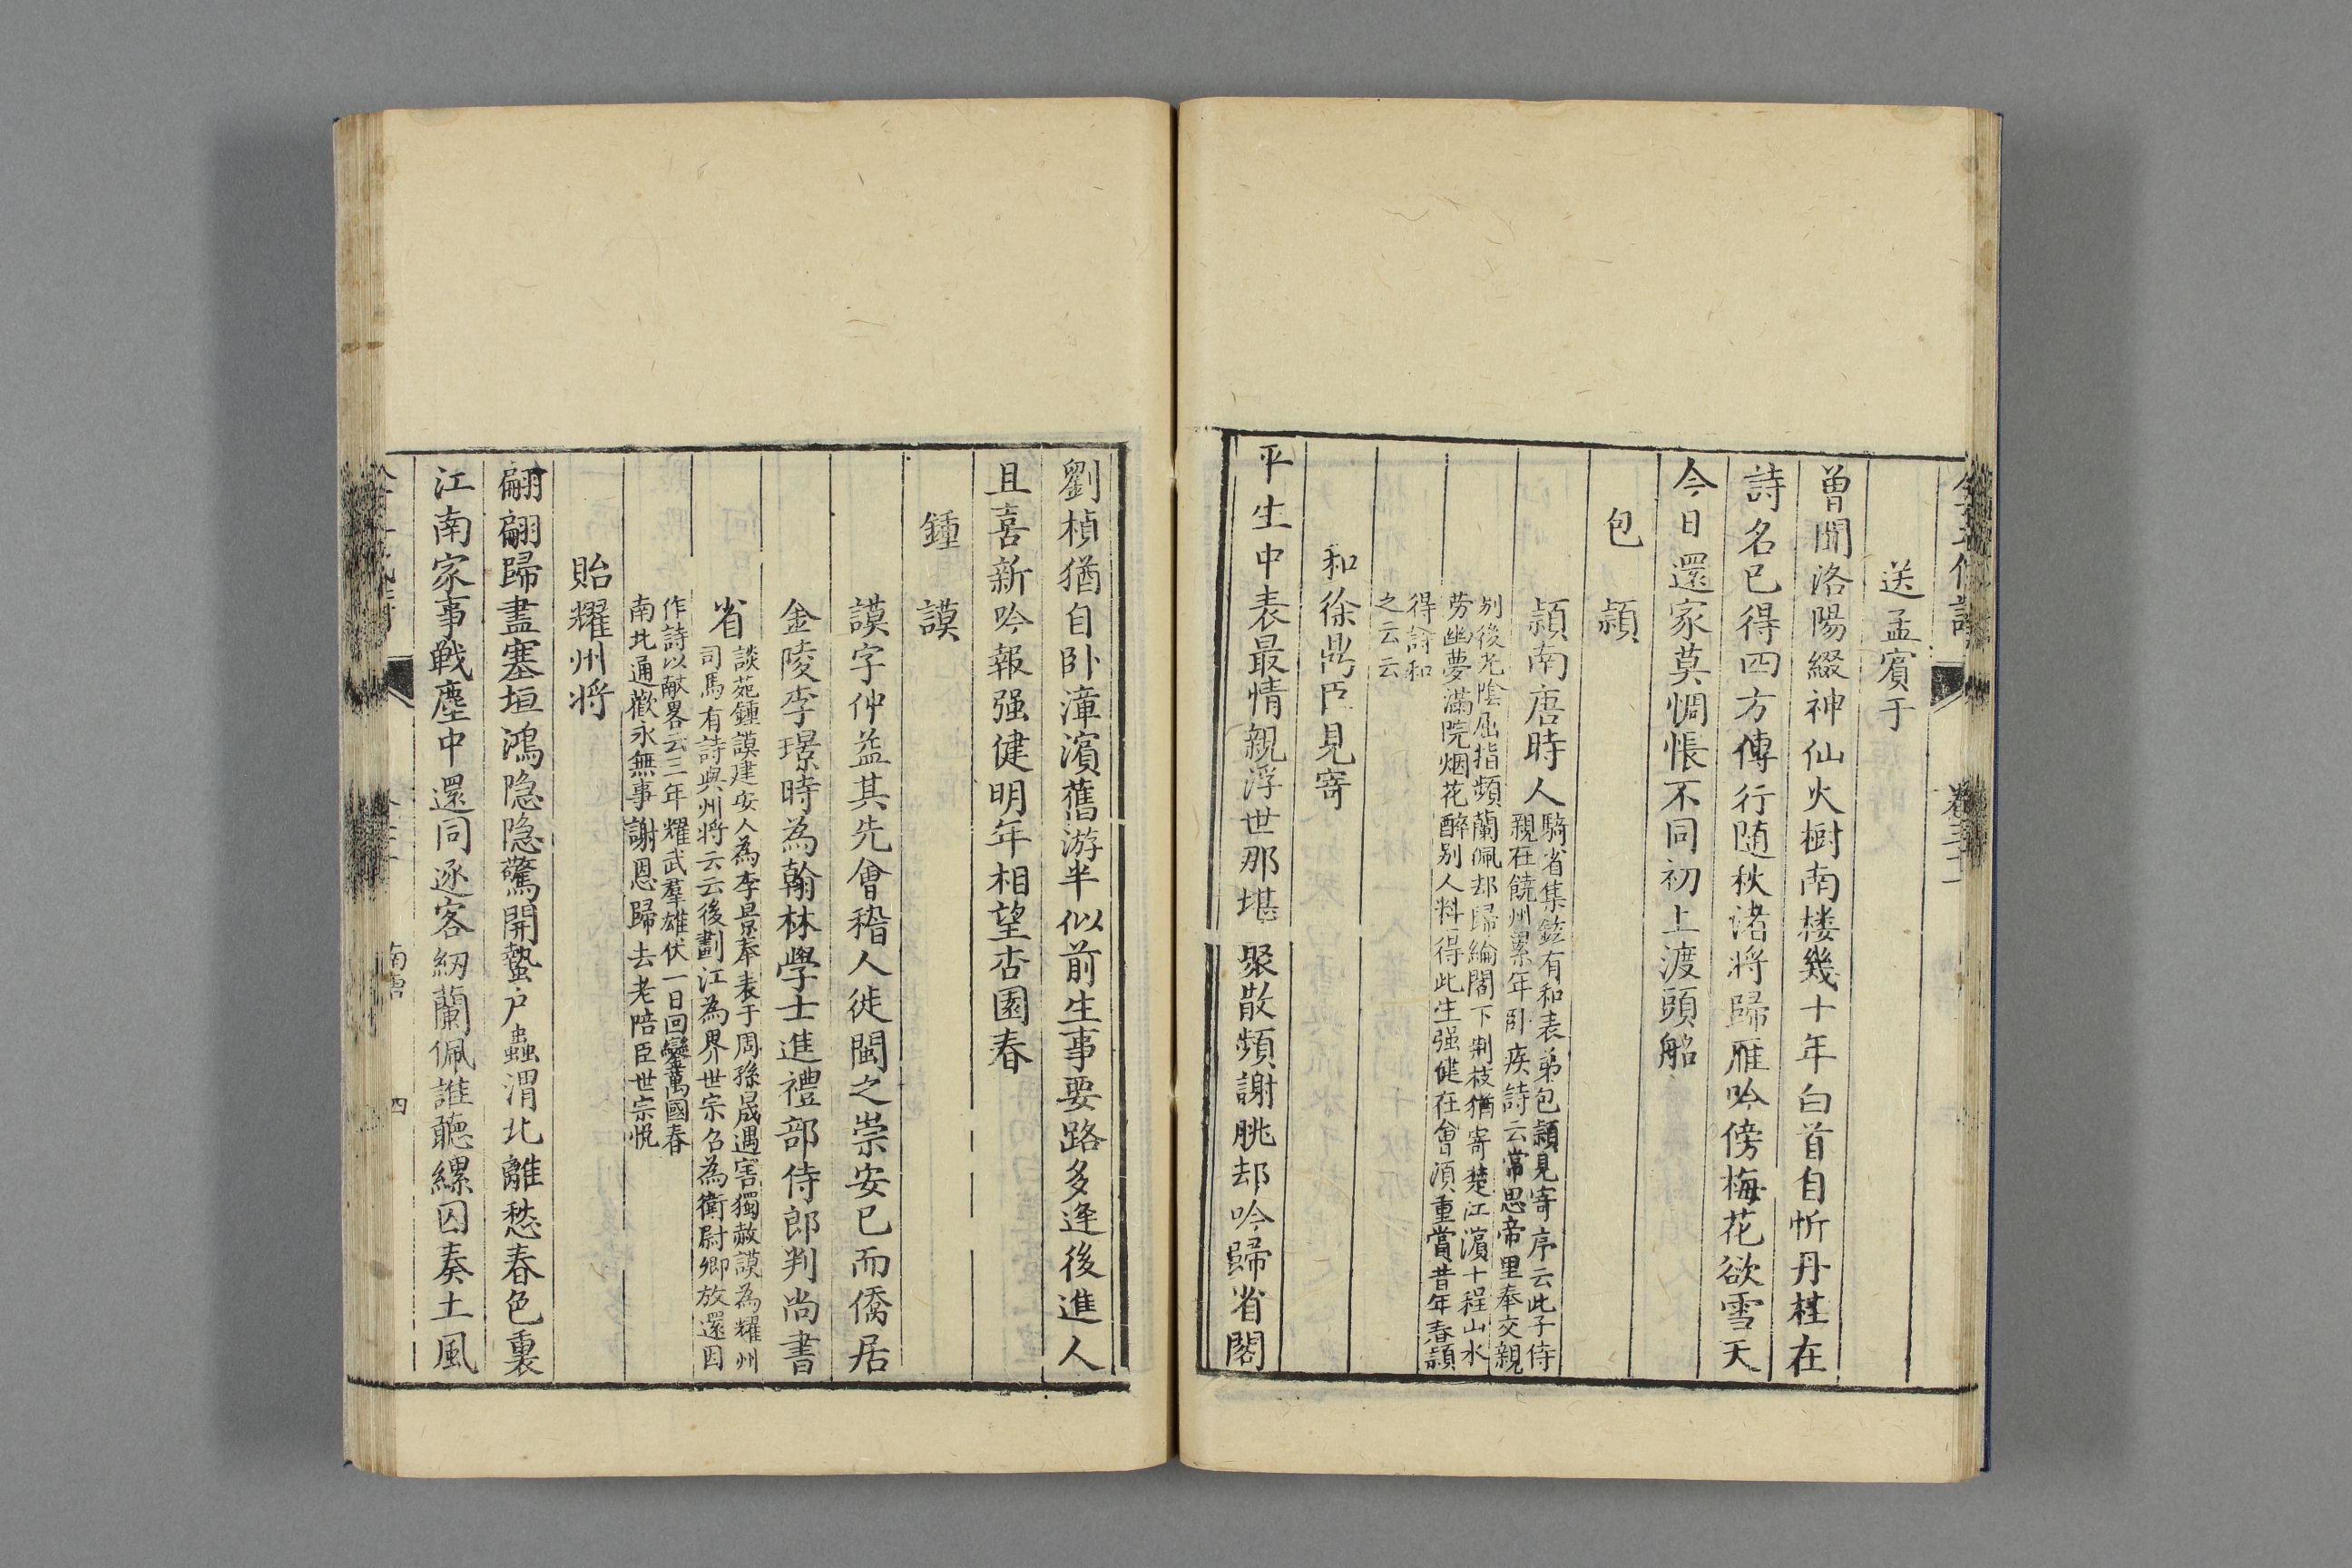 送孟賓于
曾聞洛陽綴神仙火樹南楼幾十年白首自忻丹桂在
詩名已得四方傳行随秋渚將歸雁吟傍梅花欲雪天
今日還家莫惆悵不同初上渡頭船
包頴
頴南唐時人
騎省集鉉有和表弟包頴見寄序云此子侍
親在饒州累年卧疾詩云常思帝里奉交親
别後光陰屈指頻蘭佩却歸綸閣下荆枝猶寄楚江濵十程山水
劳幽夢滿院烟花醉别人料得此生强健在會湏重賞昔年春頴
得詩和
之云云
和徐鼎臣見寄
平生中表最情親浮世那堪聚散頻謝朓却吟歸省閣
劉楨猶自卧漳濵舊游半似前生事要路多逢後進人
且喜新吟報强健明年相望杏園春
鍾謨
謨字仲益其先會稽人徙閩之崇安已而僑居
金陵李璟時為翰林學士進禮部侍郎判尚書
省
談苑鍾謨建安人為李景奉表于周孫晟遇害獨赦謨為耀州
司馬有詩與州將云云後劃江為界世宗召為衛尉卿放還因
作詩以献畧云三年耀武羣雄伏一日回鑾萬國春
南北通歡永無事謝恩歸去老陪臣世宗悅
貽耀州將
翩翩歸盡塞垣鴻隐隐驚開蟄户蟲渭北離愁春色裏
江南家事戰塵中還同逐客紉蘭佩誰聽縲囚奏土風
南唐
四